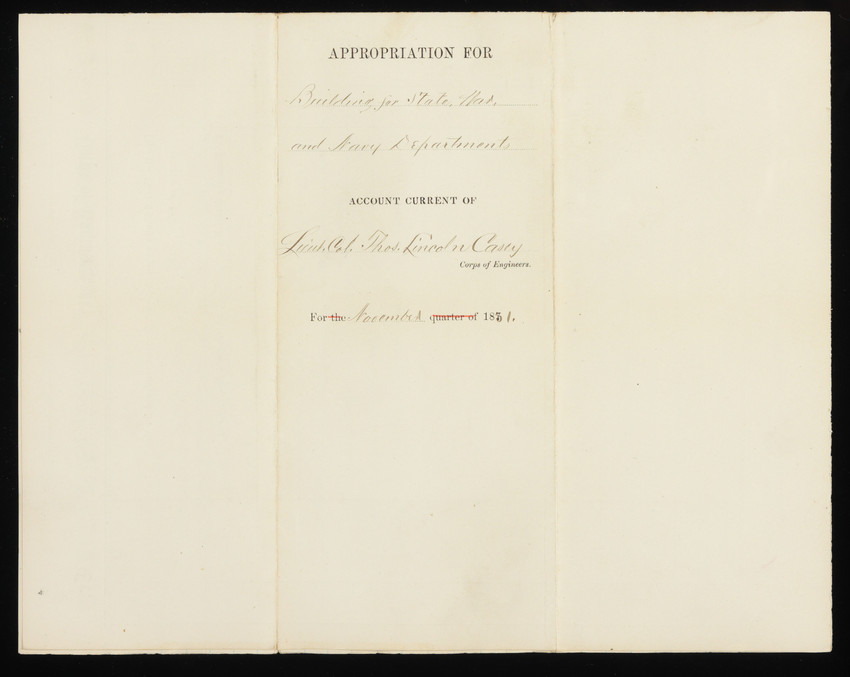 APPROPRIATION FOR
Building for State, War,
and Navy Departments
ACCOUNT CURRENT OF
Lieut. Col. Thos. Lincoln Casey
Corps of Engineers.
For the November quarter of 1881.